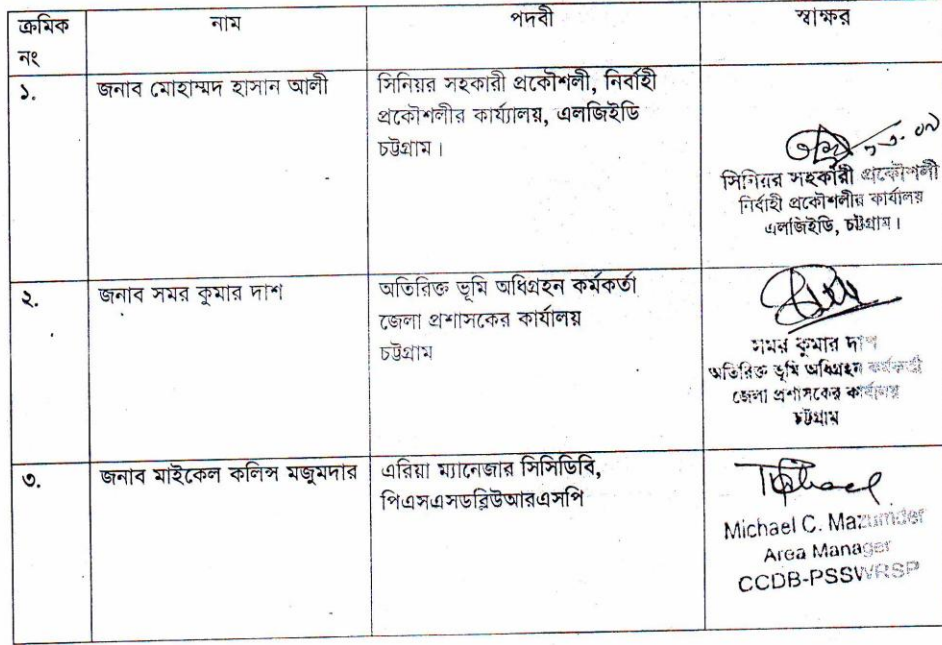 ক্রমিক নং
নাম
পদবী
স্বাক্ষর
১.
জনাব মোহাম্মদ হাসান আলী
সিনিয়র সহকারী প্রকৌশলী, নির্বাহী
প্রকৌশলীর কার্য্যালয়, এলজিইডি
চট্টগ্রাম।
সিনিয়র সহকারী প্রকৌশলী
নির্বাহী প্রকৌশলীর কার্যালয়
এলজিইডি, চট্টগ্রাম।
২.
জনাব সমর কুমার দাশ
অতিরিক্ত ভূমি অধিগ্রহন কর্মকর্তা
জেলা প্রশাসকের কার্যালয়
চট্টগ্রাম
সমর কুমার দাশ
অতিরিক্ত ভূমি অধিগ্রহন কর্মকর্তা
জেলা প্রশাসকের কার্যালয়
চট্টগ্রাম
৩.
জনাব মাইকেল কলিন্স মজুমদার
এরিয়া ম্যানেজার সিসিডিবি,
পিএসএসডব্লিউআরএসপি
Michael C. Mazumder
Area Manager
CCDB-PSSWRSP